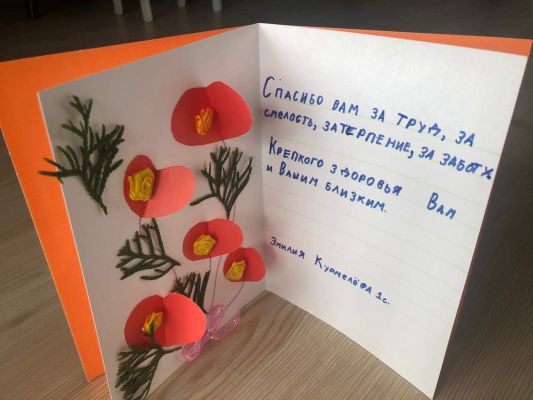 Спасибо вам за труд, за
смелость, за терпение, за заботу
Крепкого здоровья Вам
и Вашим близким.
Эмилия 1с.